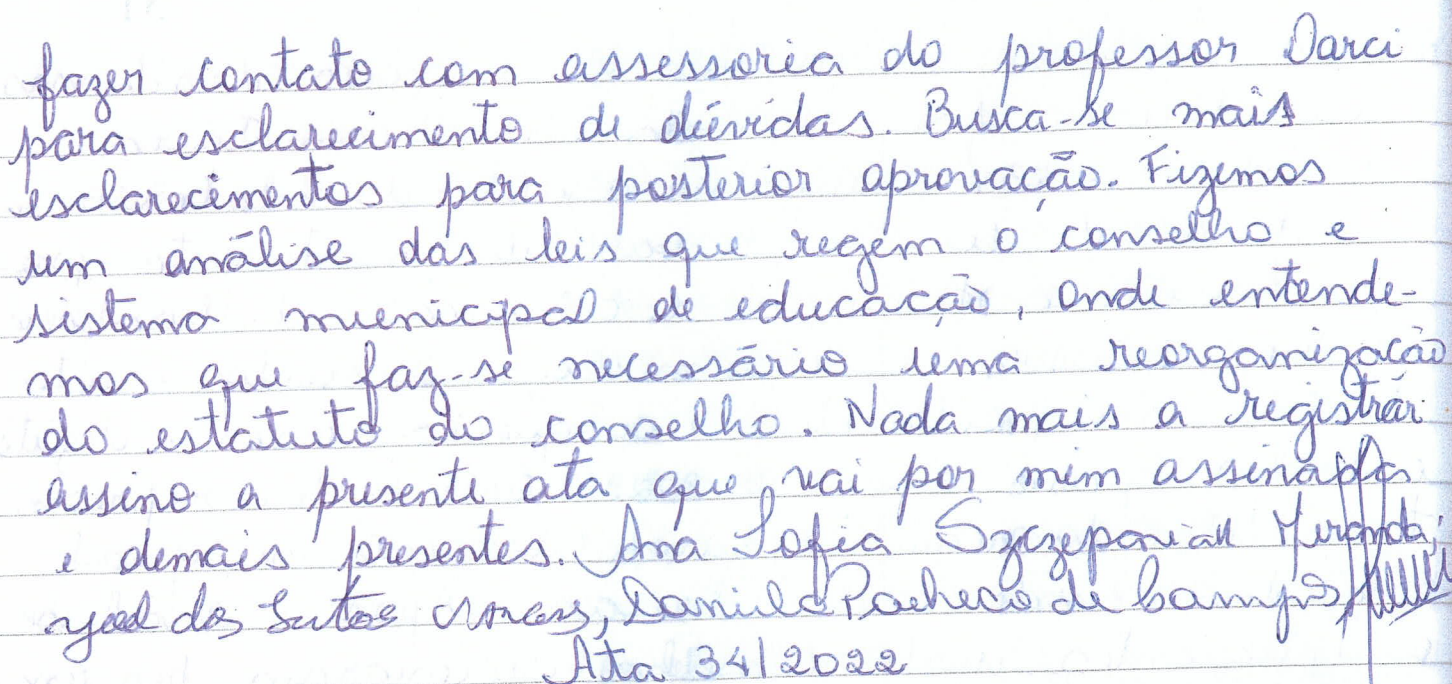 fazer contato com assessoria do professor Darci
para esclarecimento de dúvidas. Busca-se mais
esclarecimentos para posterior aprovação. Fizemos
um análise das leis que regem o conselho e
sistema municipal de educação, onde entende-
mos que faz-se necessário uma reorganização
do estatuto do conselho. Nada mais a registrar
assino a presente ata que vai por mim assinada
e demais presentes. Ana Sofia Szczepaniak Miranda,
dos Santos Daniela Pacheco de Campos,
Ata 34/2022